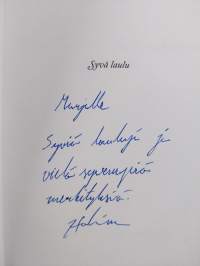 Syvä laulu
Marjalle
Syviä lauluja ja
vielä syvempiä
merkityksiä.